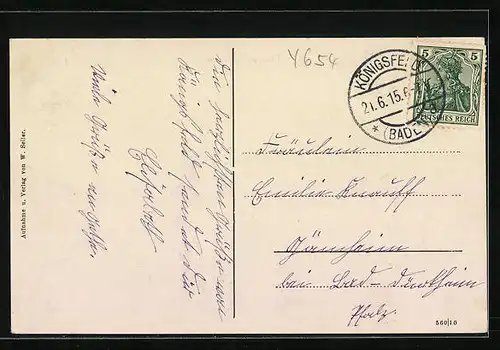 Y654
KÖNIGSFELD
21.6.15.6-
* (BADEN)
5 5
DEUTSCHES REICH
Die herzlichsten Grüße von
Königsfeld sendet Dir
Viele Grüße an
Fräulein
Emilie Knauff
Gönnheim
bei Bad-Dürkheim
Pfalz.
Aufnahme u. Verlag von W. Seiler.
560/10